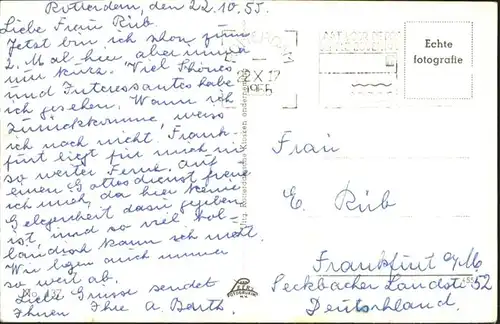 Rotterdam, den 22.10.55.
Liebe Frau Rüb.
Jetzt bin ich schon zum
2. Mal hier, aber immer
nur kurz. Viel Schönes
und Interessantes habe
ich gesehen. Wann ich
zurückkomme, weis
ich noch nicht. Frank-
furt liegt für mich in
so weiter Ferne. Auf
einen Gottesdienst freue
ich mich, da hier keine
Gelegenheit dazu gegeben
ist, und so viel hol-
ländisch kann ich nicht.
Wir liegen auch immer
so weit ab.
Liebe Grüsse sendet
Ihnen Ihre A. Barth.
22 X 17
1955
Echte
fotografie
Frau
E. Rüb
Frankfurt a/M
Seckbacher Landstr. 52
Deutschland.